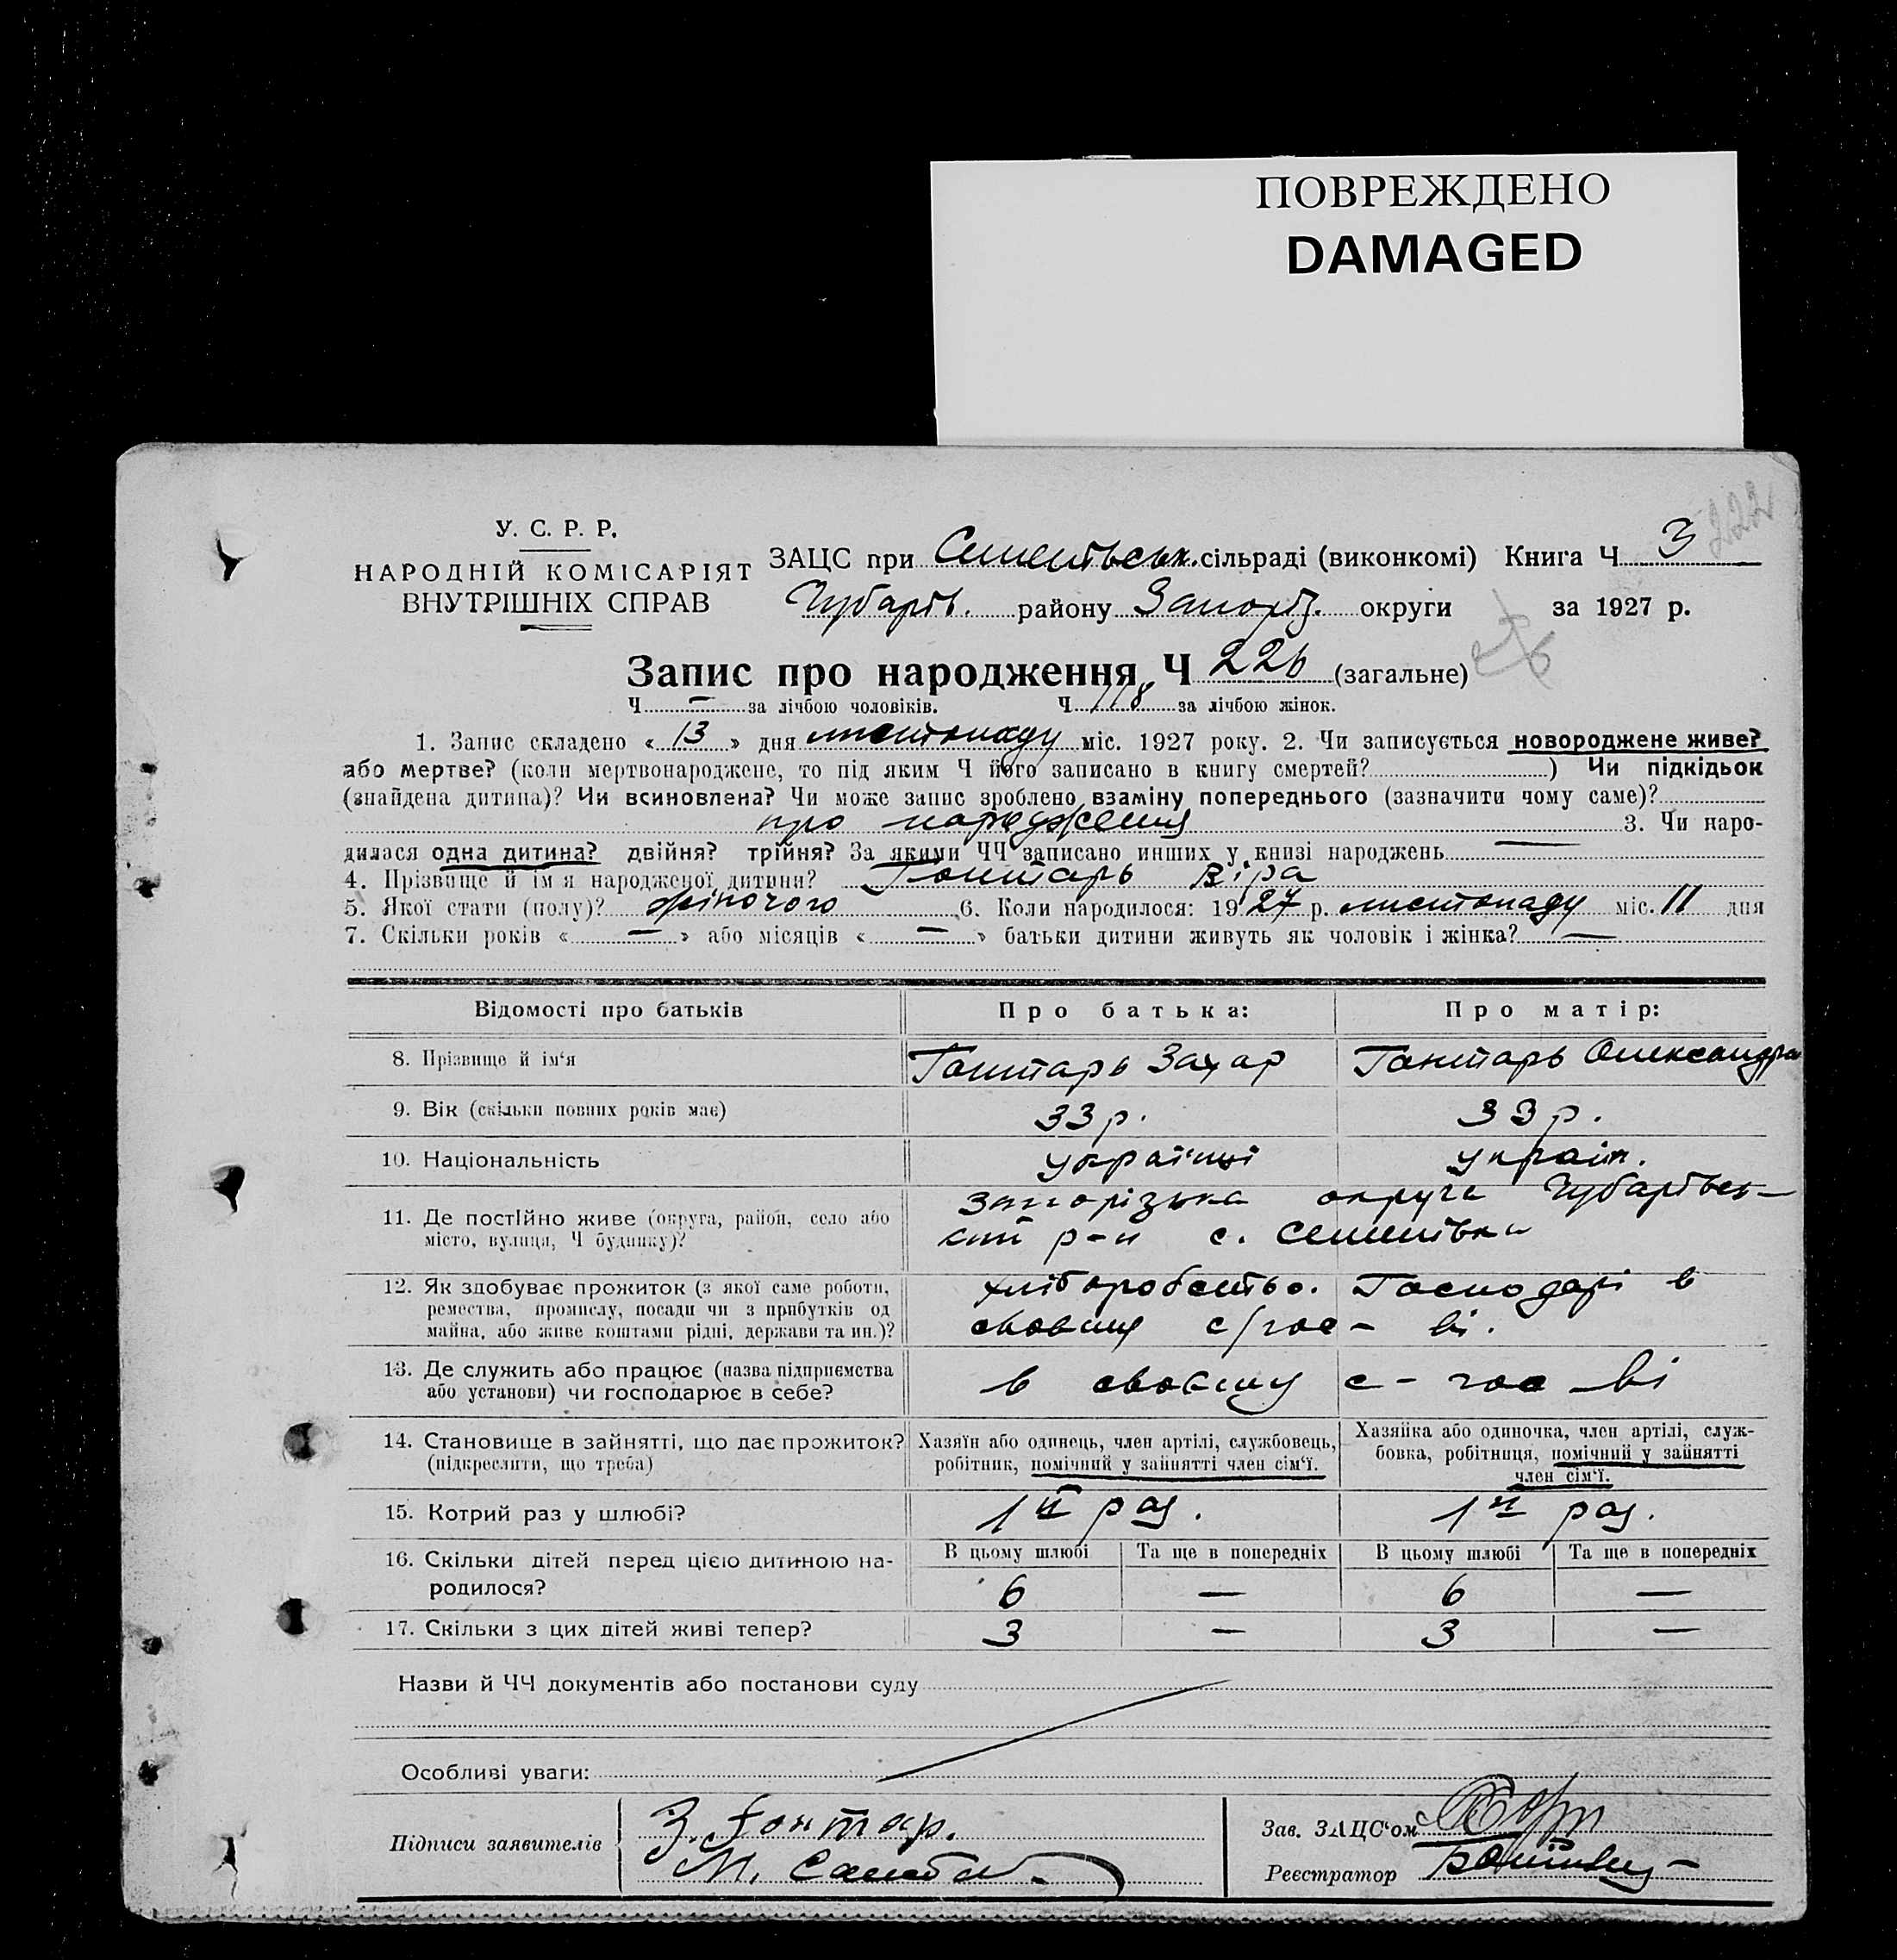 ПОВРЕЖДЕНО
DAMAGED
222
У. С. Р. Р.
НАРОДНІЙ КОМІСАРІЯТ
ВНУТРІШНІХ СПРАВ
ЗАЦС при Семенівськ. сільраді (виконкомі) Книга Ч 3
Чубарів. району Запоріз. округи за 1927 р.
Запис про народження Ч 226 (загальне)
Ч — за лічбою чоловіків. Ч 118 за лічбою жінок.
1. Запис складено « 13 » дня листопаду міс. 1927 року. 2. Чи записується новороджене живе?
або мертве? (коли мертвонароджене, то під яким Ч його записано в книгу смертей? ) Чи підкідьок
(знайдена дитина)? Чи всиновлена? Чи може запис зроблено взаміну попереднього (зазначити чому саме)?
про народження 3. Чи наро-
дилася одна дитина? двійня? трійня? За якими ЧЧ записано инших у книзі народжень —
4. Прізвище й ім'я народженої дитини? Гонтарь Віра
5. Якої стати (полу)? жіночого 6. Коли народилося: 1927 р. листопаду міс. 11 дня
7. Скільки років « — » або місяців « — » батьки дитини живуть як чоловік і жінка? —
Відомості про батьків Про батька: Про матір:
8. Прізвище й ім‘я Гонтарь Захар Гонтарь Олександра
9. Вік (скільки повних років має) 33 р. 33 р.
10. Національність українці україн.
11. Де постійно живе (округа, район, село або
місто, вулиця, Ч будинку)?
Запорізька округа Чубарівсь-
кий р-н с. Семенівка
12. Як здобуває прожиток (з якої саме роботи,
ремества, промислу, посади чи з прибутків од
майна, або живе коштами рідні, держави та ин.)?
хліборобство. Господарі в
своєму с/гос- ві.
13. Де служить або працює (назва підприємства
або установи) чи господарює в себе?
в своєму с-гос-ві
14. Становище в зайнятті, що дає прожиток?
(підкреслити, що треба)
Хазяїн або одинець, член артілі, службовець,
робітник, помічний у зайнятті член сім‘ї.
Хазяйка або одиночка, член артілі, служ-
бовка, робітниця, помічний у зайнятті
член сім‘ї.
15. Котрий раз у шлюбі? 1й раз. 1й раз.
16. Скільки дітей перед цією дитиною на-
родилося?
В цьому шлюбі Та ще в попередніх В цьому шлюбі Та ще в попередніх
6 — 6 —
17. Скільки з цих дітей живі тепер? 3 — 3 —
Назви й ЧЧ документів або постанови суду
Особливі уваги:
Підписи заявителів
З. Гонтар.
Зав. ЗАЦС‘ом
Реєстратор